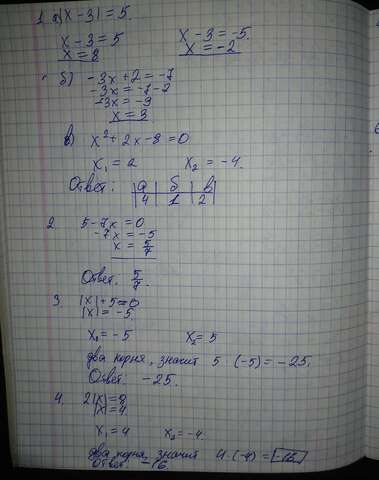 1. а) |x - 3| = 5.
x - 3 = 5 x - 3 = -5.
x = 8 x = -2
б) -3x + 2 = -7
-3x = -7 - 2
-3x = -9
x = 3
в) x² + 2x - 8 = 0
x₁ = 2 x₂ = -4.
Ответ: а б в
4 1 2
2. 5 - 7x = 0
-7x = -5
x = 5/7
Ответ: 5/7.
3. |x| + 5 = 0
|x| = -5
x₁ = -5 x₂ = 5
два корня, значит 5 · (-5) = -25.
Ответ: -25.
4. 2|x| = 8
|x| = 4
x₁ = 4 x₂ = -4.
два корня, значит 4 · (-4) = -16.
Ответ: -16